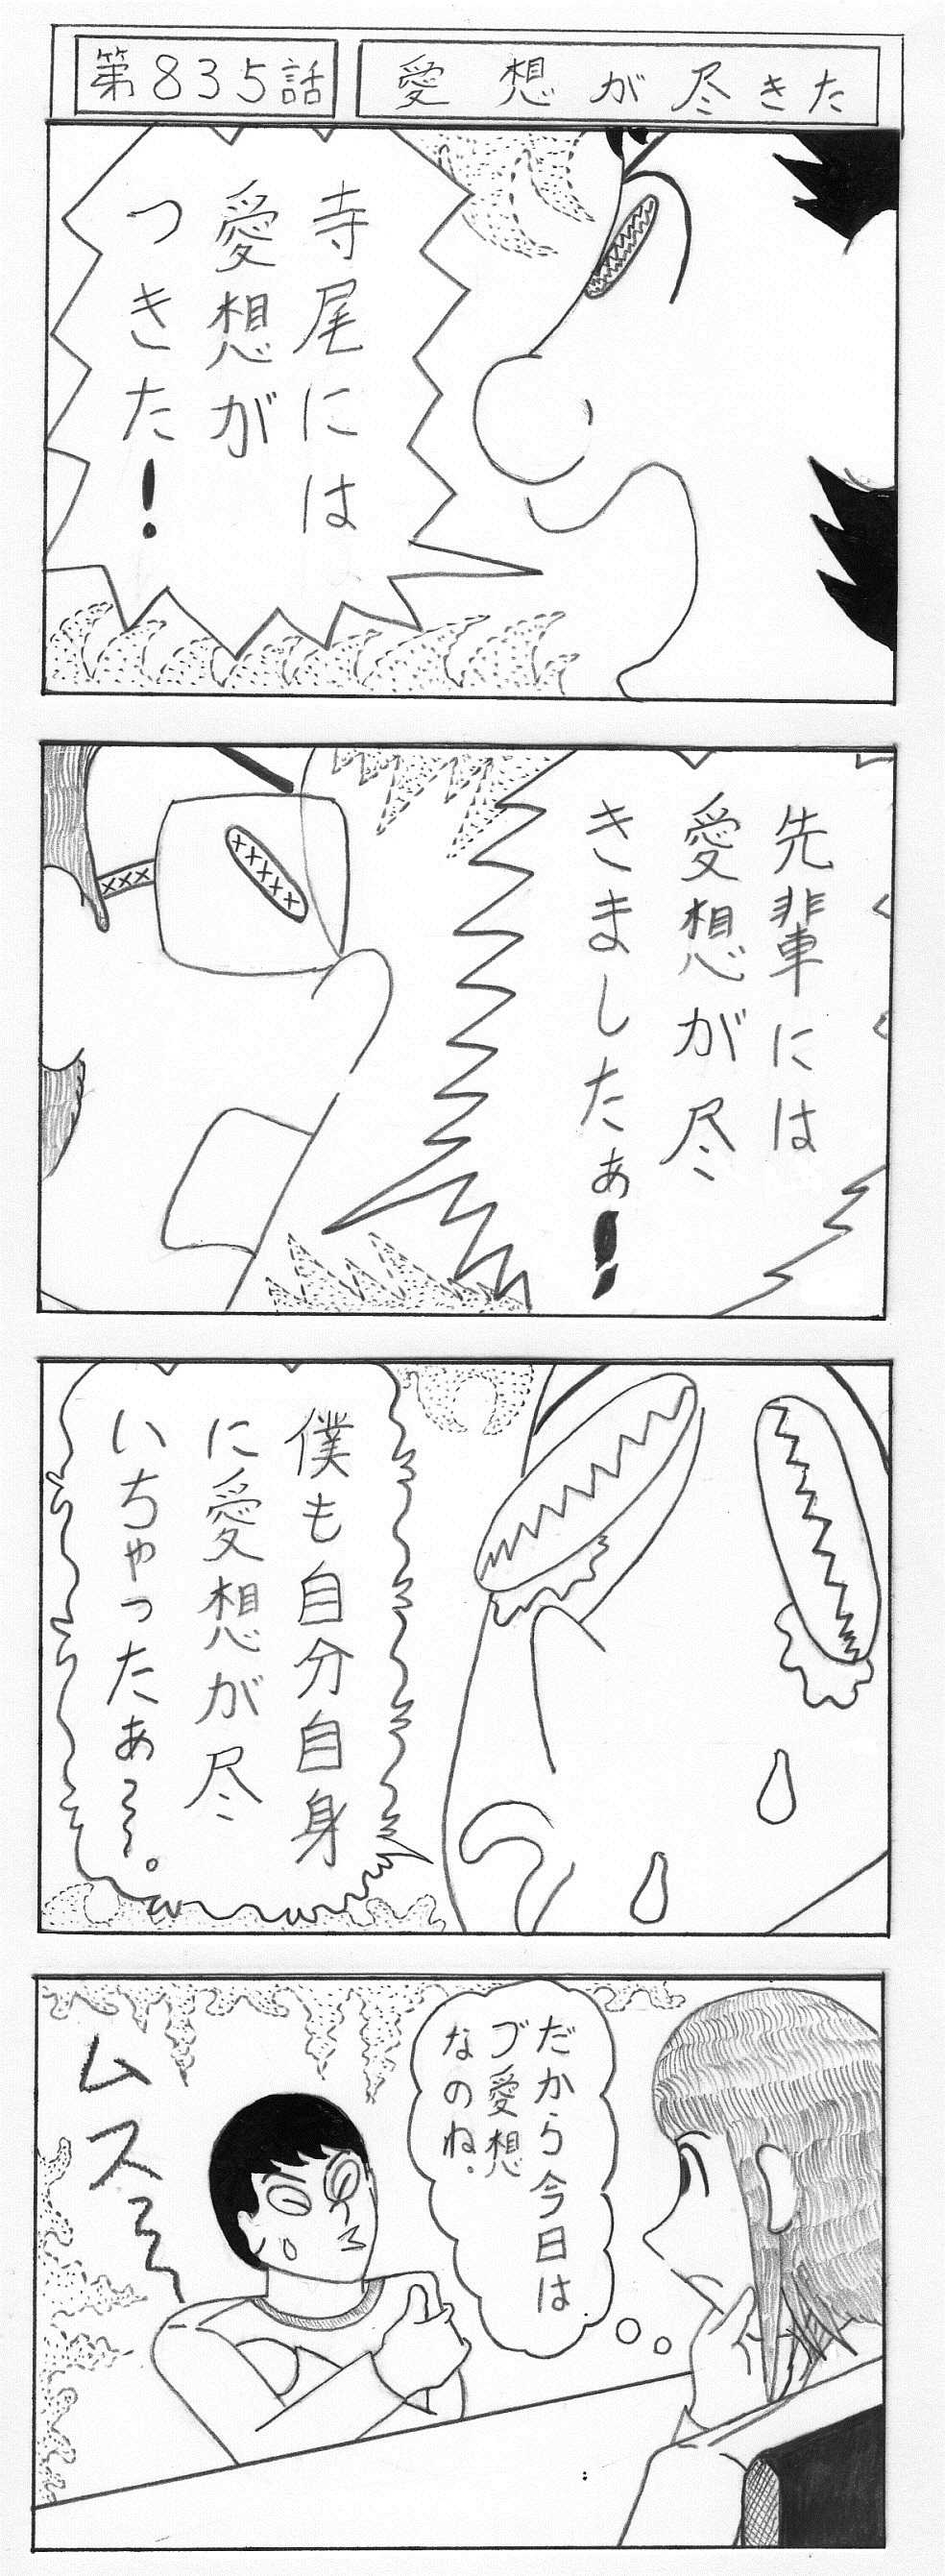 第835話
愛想が尽きた
寺尾には
愛想が
つきた!
先輩には
愛想が尽
きましたぁ!
僕も自分自身
に愛想が尽
いちゃったぁ～。
だから今日は
ブ愛想
なのね。
ムスー